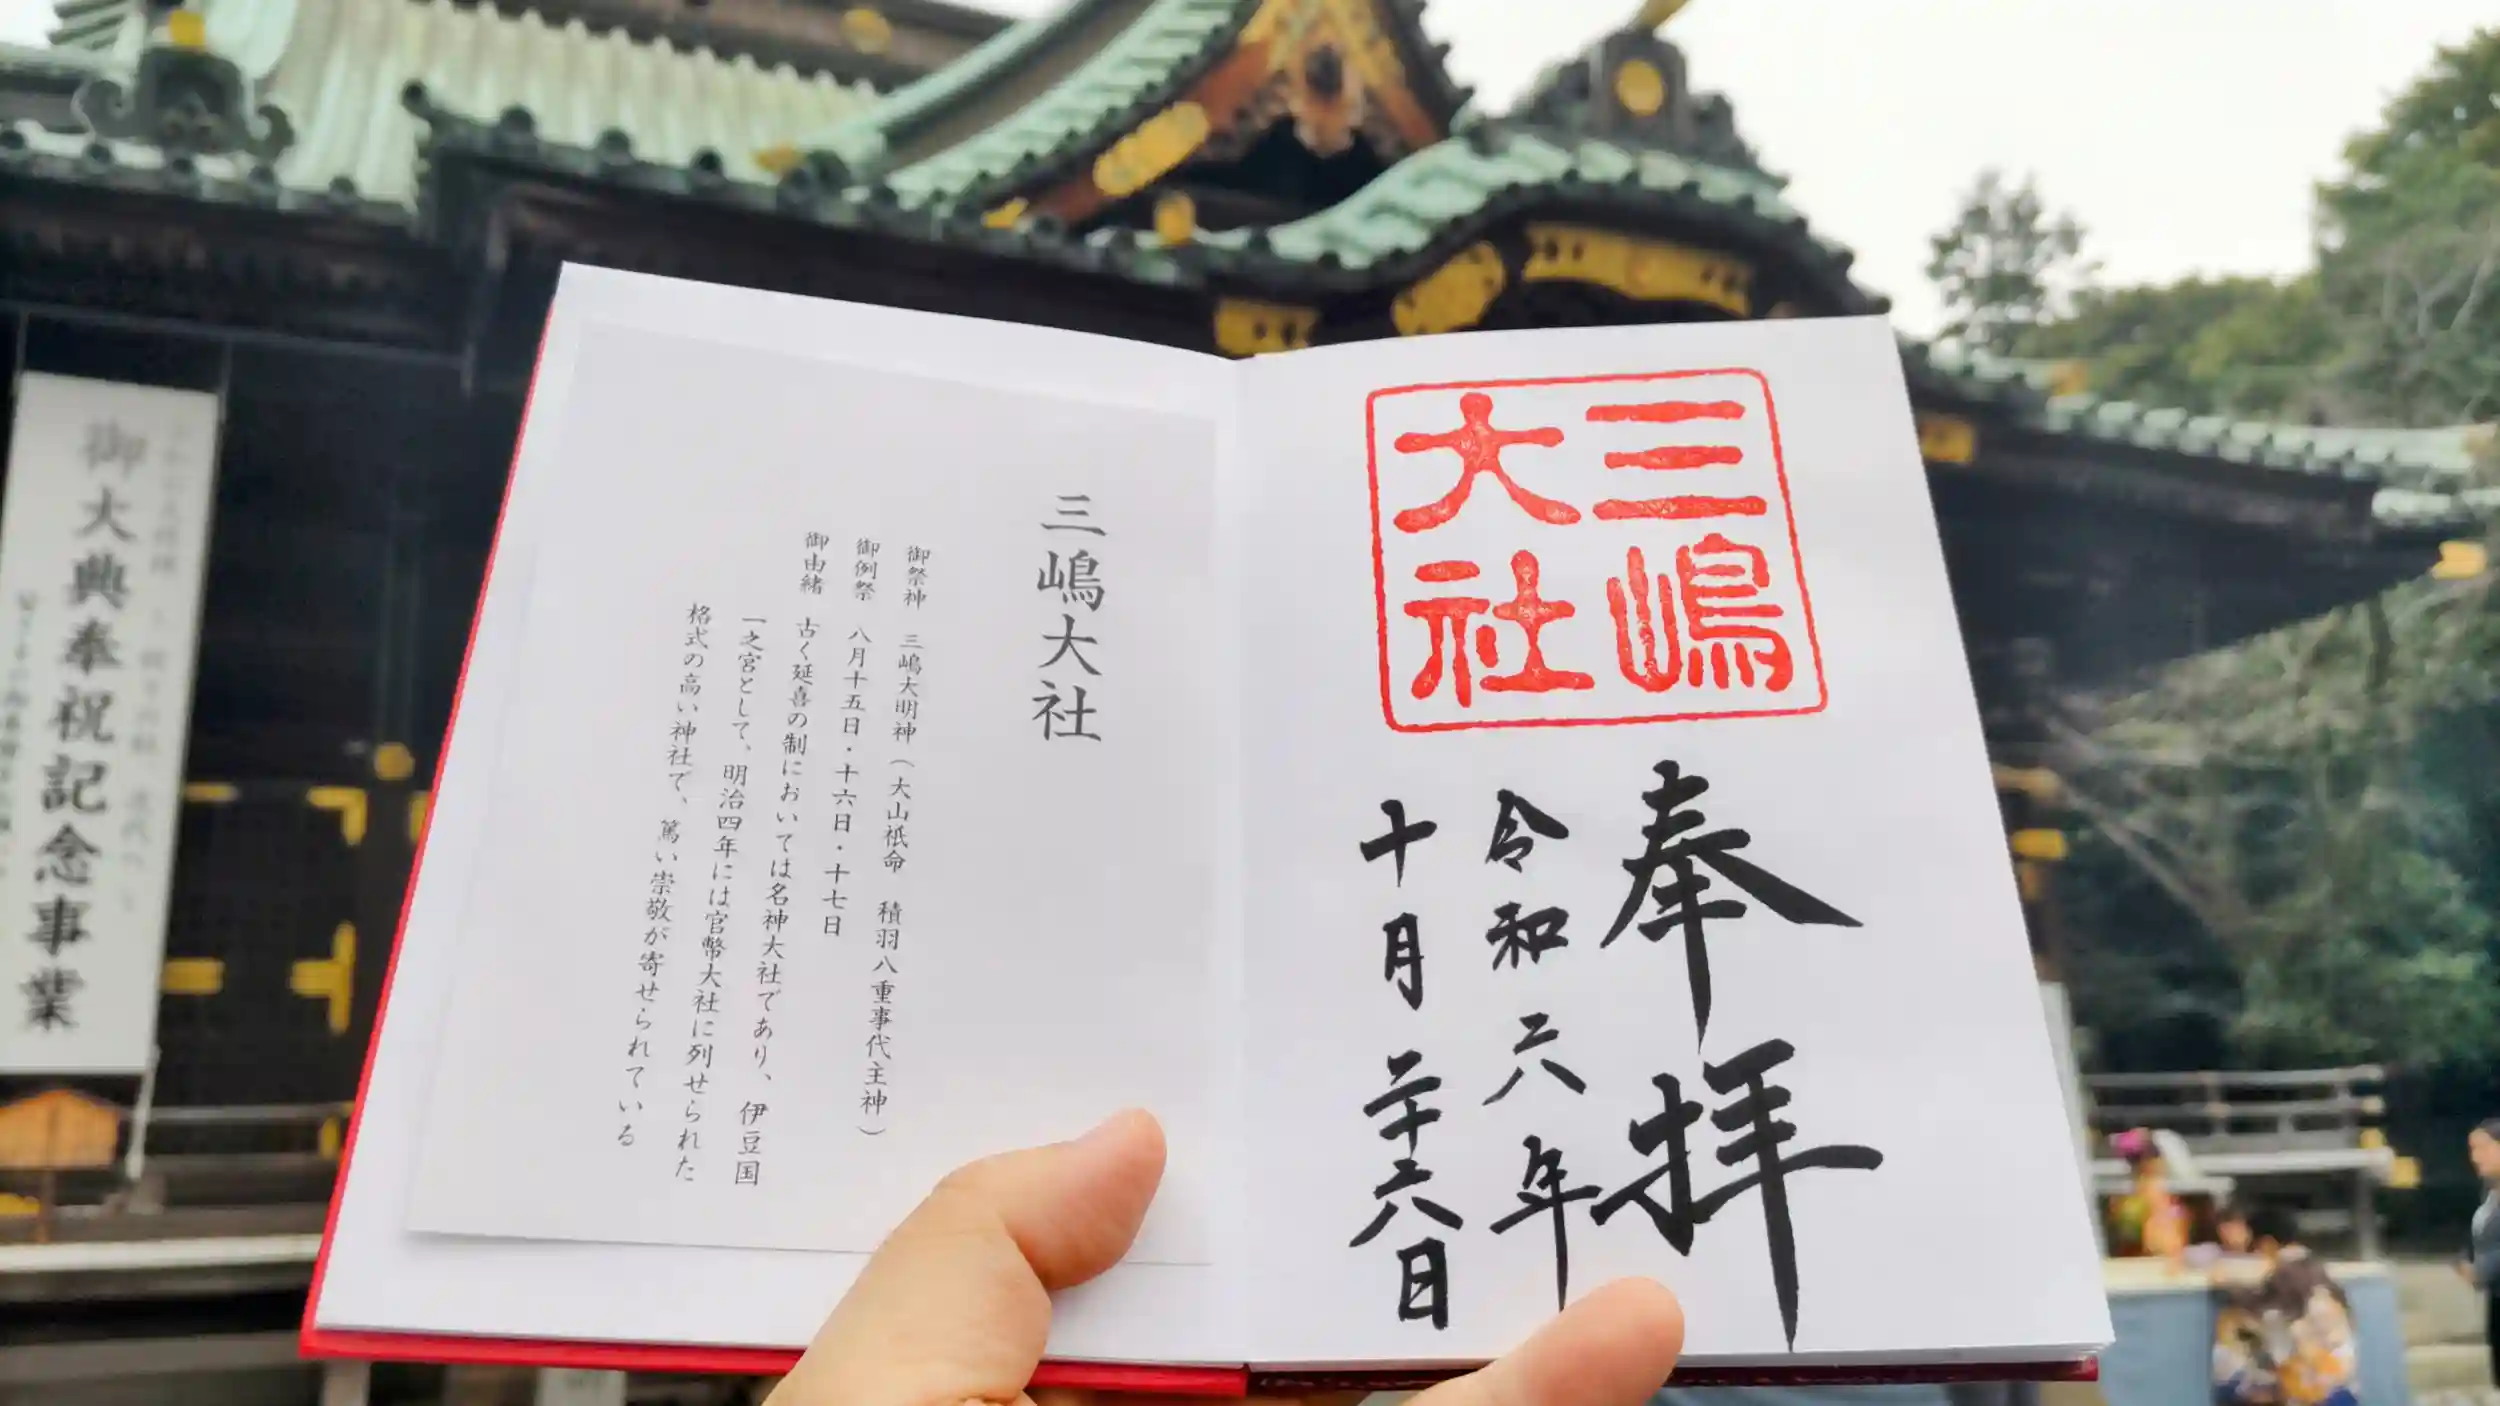 三嶋
大社
奉拝
令和六年
十月二十六日
三嶋大社
御祭神 三嶋大明神(大山祇命 積羽八重事代主神)
御例祭 八月十五日・十六日・十七日
御由緒 古く延喜の制においては名神大社であり、伊豆国
一之宮として、明治四年には官幣大社に列せられた
格式の高い神社で、篤い崇敬が寄せられている
御大典奉祝記念事業